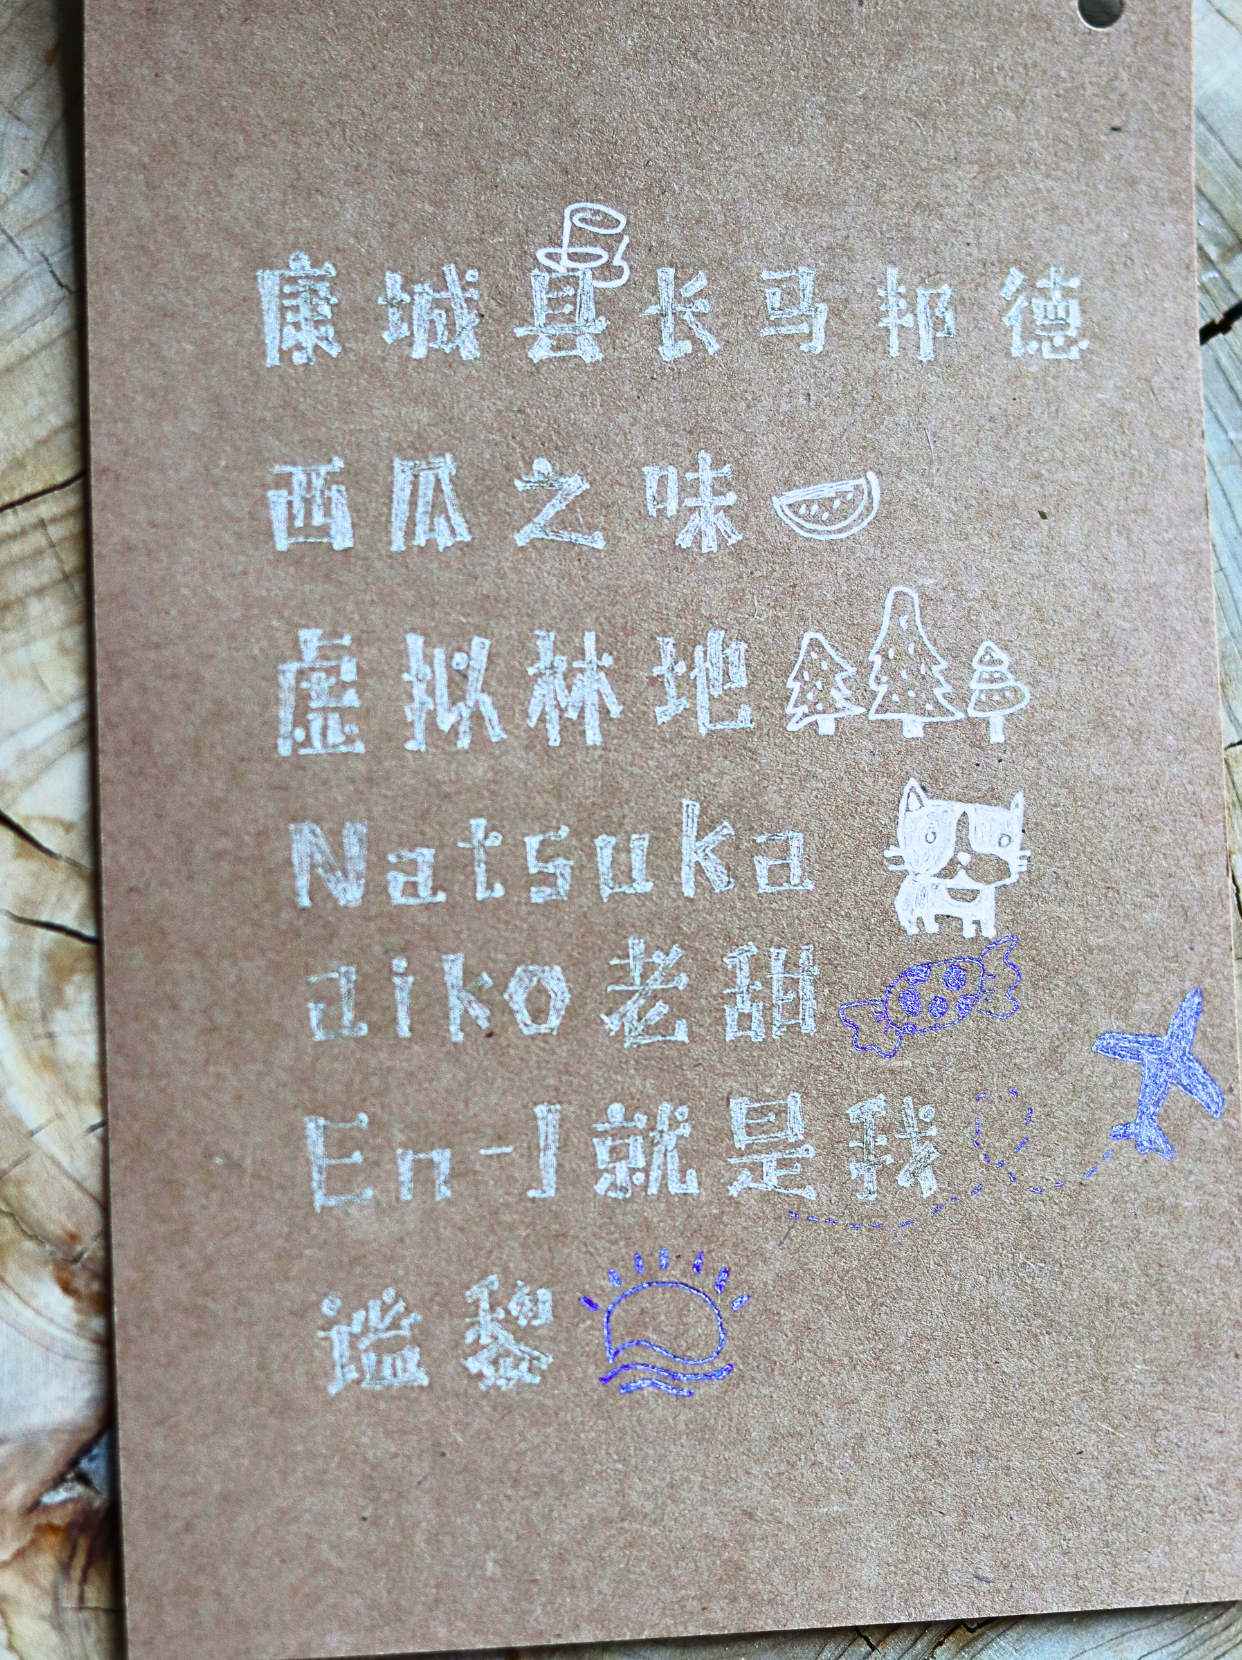 康城县长马邦德
西瓜之味
虚拟林地
Natsuka
aiko老甜
En-J就是我
谧黎